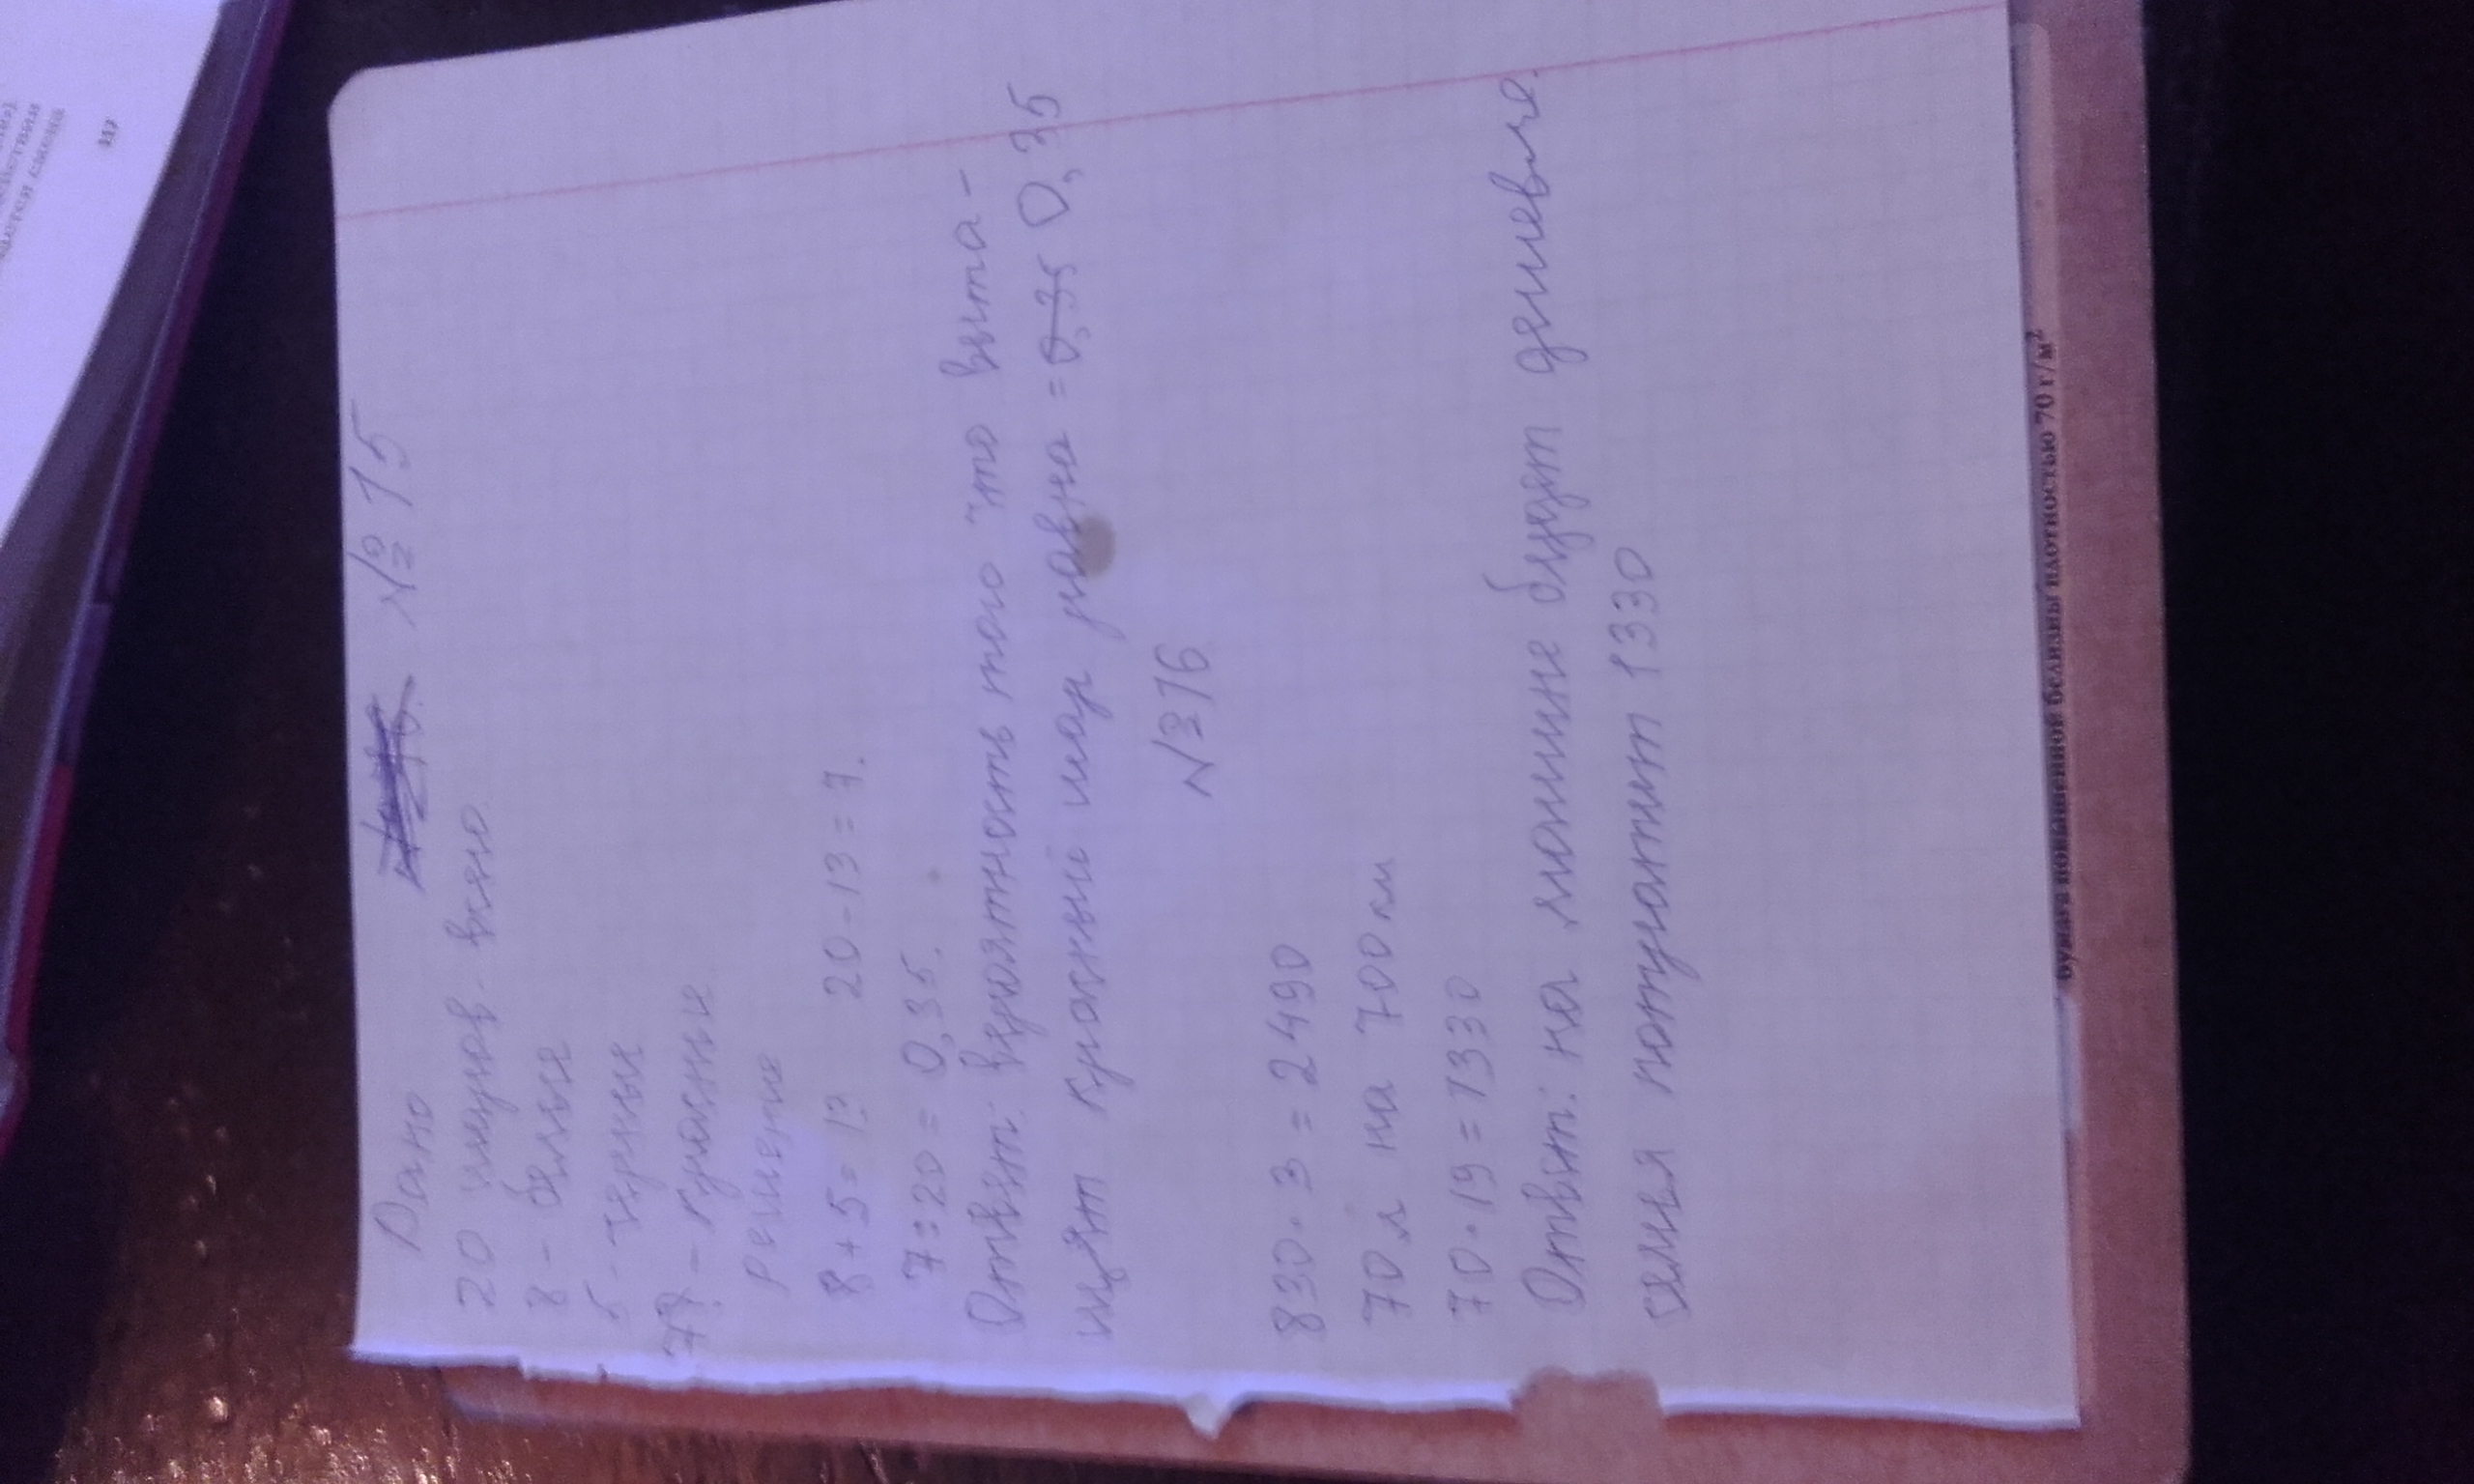 № 15
Дано
20 шаров - всего
8 - белые
5 - черные
7? - красные
Решение
8 + 5 = 13 20 - 13 = 7.
7 : 20 = 0,35.
Ответ: вероятность того что выта-
щят красный шар равна = 0,35 0,35
№ 16
830 · 3 = 2490
70 л на 700 км
70 · 19 = 1330
Ответ: на машине будет дешевле.
семья потратит 1330
бумага повышенной белизны плотностью 70 г/м²
117